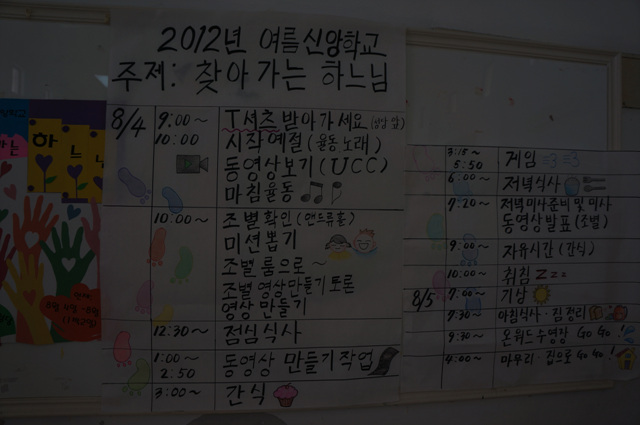 2012년 여름신앙학교
주제: 찾아가는 하느님
8/4 9:00~ T셔츠 받아가세요 (성당 앞)
10:00 시작예절 (율동, 노래)
동영상보기 (UCC)
마침율동
10:00~ 조별확인 (앤드류홀)
미션뽑기
조별 룸으로~
조별 영상만들기 토론
영상 만들기
12:30~ 점심식사
1:00~ 동영상 만들기작업
2:50
3:00~ 간식
3:15~ 게임
5:50
6:00~ 저녁식사
7:20~ 저녁미사준비 및 미사
동영상 발표 (조별)
9:00~ 자유시간 (간식)
10:00~ 취침 Zzz
8/5 7:00~ 기상
7:30~ 아침식사·짐정리
9:30~ 온워드수영장 Go Go!
4:00~ 마무리·집으로 Go Go!
하느